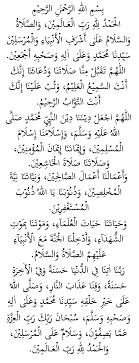 بِسْمِ اللهِ الرَّحْمٰنِ الرَّحِيْمِ
الْحَمْدُ لِلّٰهِ رَبِّ الْعَالَمِيْنَ، وَالصَّلَاةُ
وَالسَّلَامُ عَلَى أَشْرَفِ الْأَنْبِيَاءِ وَالْمُرْسَلِيْنَ
سَيِّدِنَا مُحَمَّدٍ وَعَلَى آلِهِ وَصَحْبِهِ أَجْمَعِيْنَ.
اللّٰهُمَّ تَقَبَّلْ مِنَّا صَلَاتَنَا وَدُعَاءَنَا إِنَّكَ
أَنْتَ السَّمِيْعُ الْعَلِيْمُ، وَتُبْ عَلَيْنَا إِنَّكَ
أَنْتَ التَّوَّابُ الرَّحِيْمُ.
اللّٰهُمَّ اجْعَلْ دِيْنَنَا دِيْنَ النَّبِيِّ مُحَمَّدٍ صَلَّى
اللهُ عَلَيْهِ وَسَلَّمَ، وَإِسْلَامَنَا إِسْلَامَ
الْمُسْلِمِيْنَ، وَإِيْمَانَنَا إِيْمَانَ الْمُؤْمِنِيْنَ،
وَصَلَاتَنَا صَلَاةَ الْخَاشِعِيْنَ.
وَأَعْمَالَنَا أَعْمَالَ الصَّالِحِيْنَ، وَنِيَّاتِنَا نِيَّةَ
الْمُخْلِصِيْنَ، وَذُنُوْبَنَا يَا اللهُ ذُنُوْبَ
الْمُسْتَغْفِرِيْنَ.
وَحَيَاتَنَا حَيَاتَ الْعُلَمَاءِ، وَمَوْتَنَا مَوْتَ
الشُّهَدَاءِ، وَأَدْخِلْنَا الْجَنَّةَ مَعَ الْأَنْبِيَاءِ
عَلَيْهِمُ الصَّلَاةُ وَالسَّلَامُ.
رَبَّنَا آتِنَا فِي الدُّنْيَا حَسَنَةً وَفِي الْآخِرَةِ
حَسَنَةً، وَقِنَا عَذَابَ النَّارِ، وَصَلَّى اللهُ
عَلَى خَيْرِ خَلْقِهِ سَيِّدِنَا مُحَمَّدٍ وَعَلَى آلِهِ
وَصَحْبِهِ وَسَلَّمَ، سُبْحَانَ رَبِّكَ رَبِّ الْعِزَّةِ
عَمَّا يَصِفُوْنَ، وَسَلَامٌ عَلَى الْمُرْسَلِيْنَ،
وَالْحَمْدُ لِلّٰهِ رَبِّ الْعَالَمِيْنَ.